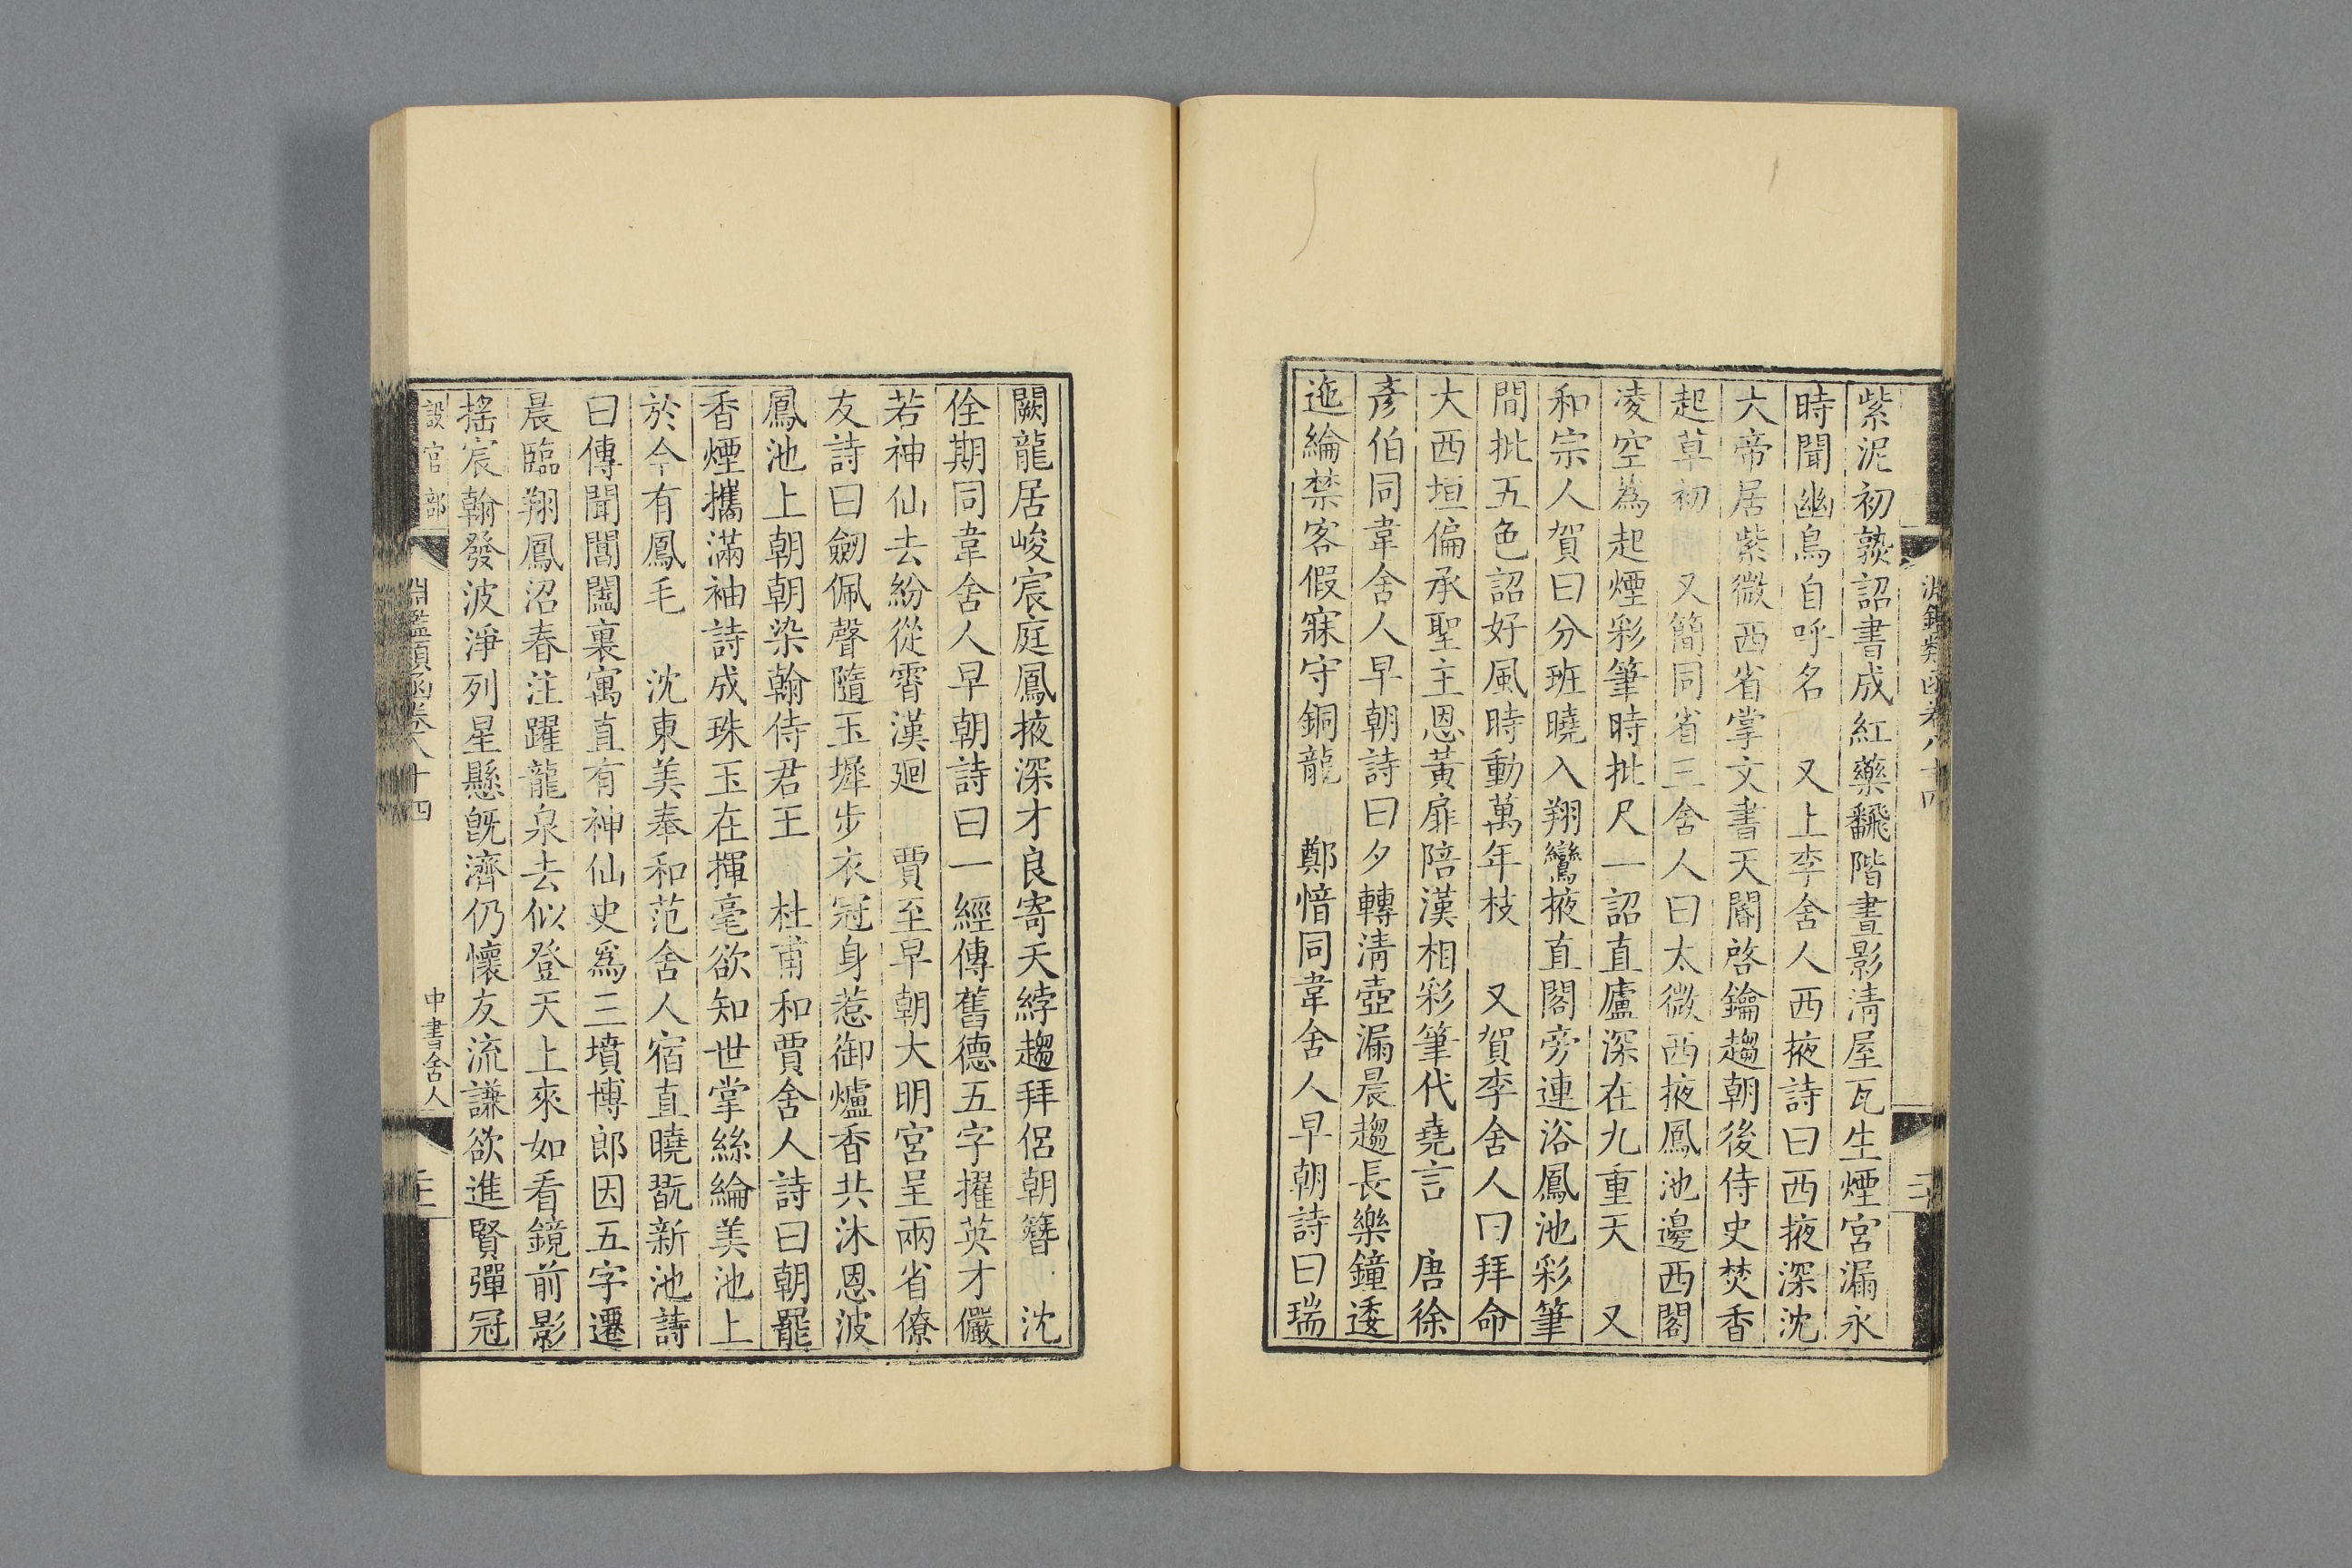 紫泥初熟詔書成紅藥飜階晝影清屋瓦生煙宮漏永
時聞幽鳥自呼名　又上李舍人西掖詩曰西掖深沈
大帝居紫微西省掌文書天閽啓鑰趨朝後侍史焚香
起草初　又簡同省三舍人曰太微西掖鳳池邊西閣
凌空為起煙彩筆時批尺一詔直廬深在九重天　又
和宗人賀曰分班曉入翔鸞掖直閣旁連浴鳳池彩筆
間批五色詔好風時動萬年枝　又賀李舍人曰拜命
大西垣偏承聖主恩黃扉陪漢相彩筆代堯言　唐徐
彥伯同韋舍人早朝詩曰夕轉清壺漏晨趨長樂鐘逶
迤綸禁客假寐守銅龍　鄭愔同韋舍人早朝詩曰瑞
闕龍居峻宸庭鳳掖深才良寄天綍趨拜侶朝簪　沈
佺期同韋舍人早朝詩曰一經傳舊德五字擢英才儼
若神仙去紛從霄漢廻　賈至早朝大明宮呈兩省僚
友詩曰劒佩聲隨玉墀步衣冠身惹御爐香共沐恩波
鳳池上朝朝染翰侍君王　杜甫和賈舍人詩曰朝罷
香煙攜滿袖詩成珠玉在揮毫欲知世掌絲綸美池上
於今有鳳毛　沈東美奉和范舍人宿直曉翫新池詩
曰傳聞閶闔裏寓直有神仙史爲三墳博郎因五字遷
晨臨翔鳳沼春注躍龍泉去似登天上來如看鏡前影
搖宸翰發波淨列星懸旣濟仍懷友流謙欲進賢彈冠
設官部
淵鑑類函卷八十四
中書舍人